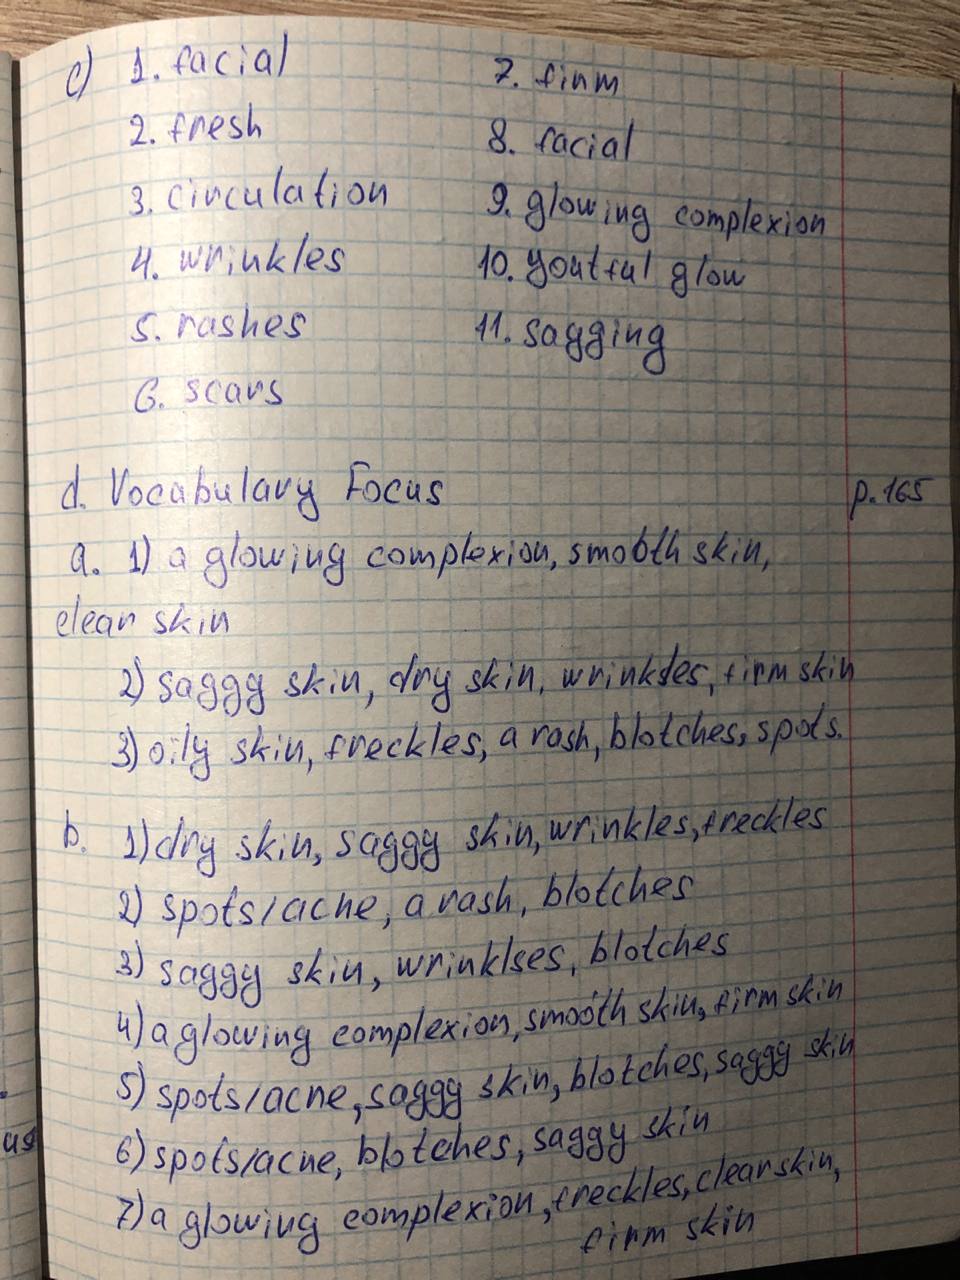 c) 1. facial
2. fresh
3. circulation
4. wrinkles
5. rashes
6. scars
7. firm
8. facial
9. glowing complexion
10. youtful glow
11. sagging
d. Vocabulary Focus p. 165
a. 1) a glowing complexion, smooth skin,
clear skin
2) saggy skin, dry skin, wrinkles, firm skin
3) oily skin, freckles, a rash, blotches, spots.
b. 1) dry skin, saggy skin, wrinkles, freckles
2) spots/acne, a rash, blotches
3) saggy skin, wrinklses, blotches
4) a glowing complexion, smooth skin, firm skin
5) spots/acne, saggy skin, blotches, saggy skin
6) spots/acne, blotches, saggy skin
7) a glowing complexion, freckles, clear skin,
firm skin
us